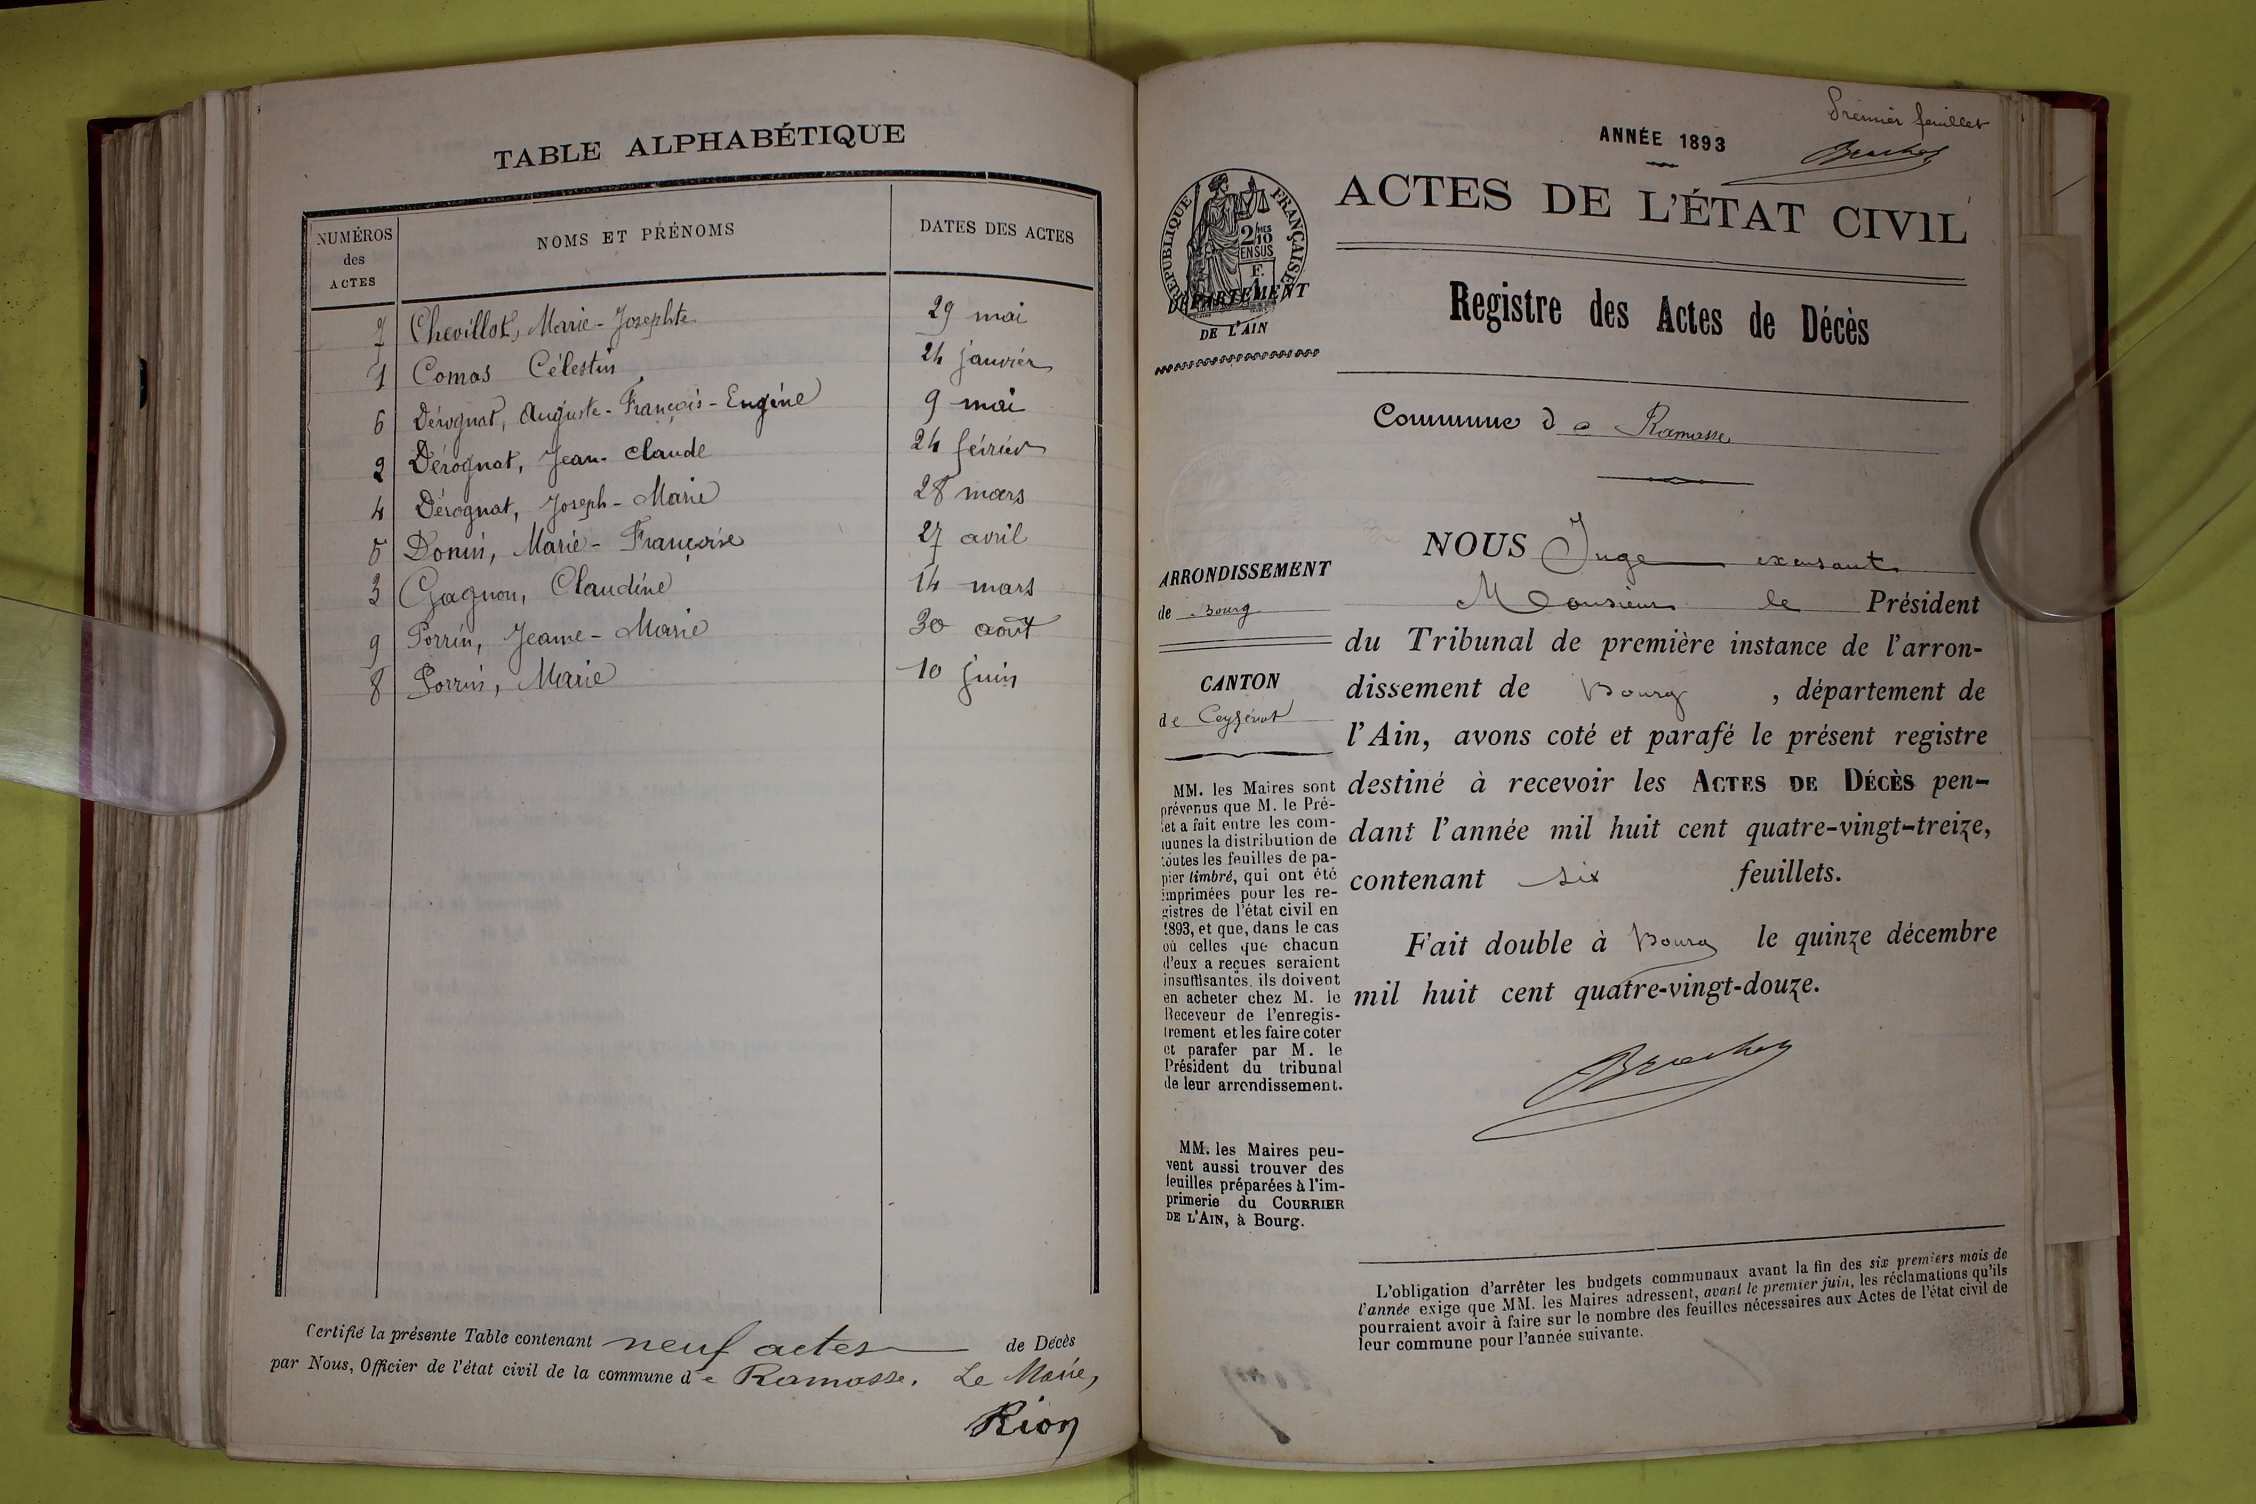 TABLE ALPHABÉTIQUE
NUMÉROS des ACTES
NOMS ET PRÉNOMS
DATES DES ACTES
7 Chevillot, Marie-Josephte 29 mai
1 Comas Célestin 24 janvier
6 Dérognat, Auguste-François-Eugène 9 mai
2 Dérognat, Jean-Claude 24 février
4 Dérognat, Joseph-Marie 28 mars
5 Donin, Marie-Françoise 27 avril
3 Gagnon, Claudine 14 mars
9 Porrin, Jeanne-Marie 30 août
8 Porrin, Marie 10 juin
Certifié la présente Table contenant neuf actes de Décès
par Nous, Officier de l'état civil de la commune de Ramasse. Le Maire,
Rion
Premier feuillet
ANNÉE 1893
ACTES DE L'ÉTAT CIVIL
RÉPUBLIQUE FRANÇAISE
2/10 EN SUS
DÉPARTEMENT
DE L'AIN
Registre des Actes de Décès
Commune de Ramasse
ARRONDISSEMENT
de Bourg
CANTON
de Ceyzériat
MM. les Maires sont
prévenus que M. le Pré-
fet a fait entre les com-
munes la distribution de
toutes les feuilles de pa-
pier timbré, qui ont été
imprimées pour les re-
gistres de l'état civil en
1893, et que, dans le cas
où celles que chacun
d'eux a reçues seraient
insuffisantes, ils doivent
en acheter chez M. le
Receveur de l'enregis-
trement et les faire coter
et parafer par M. le
Président du tribunal
de leur arrondissement.
MM. les Maires peu-
vent aussi trouver des
feuilles préparées à l'im-
primerie du COURRIER
DE L'AIN, à Bourg.
NOUS Juge excusant
Monsieur le Président
du Tribunal de première instance de l'arron-
dissement de Bourg, département de
l'Ain, avons coté et parafé le présent registre
destiné à recevoir les ACTES DE DÉCÈS pen-
dant l'année mil huit cent quatre-vingt-treize,
contenant six feuillets.
Fait double à Bourg le quinze décembre
mil huit cent quatre-vingt-douze.
L'obligation d'arrêter les budgets communaux avant la fin des six premiers mois de
l'année exige que MM. les Maires adressent, avant le premier juin, les réclamations qu'ils
pourraient avoir à faire sur le nombre des feuilles nécessaires aux Actes de l'état civil de
leur commune pour l'année suivante.